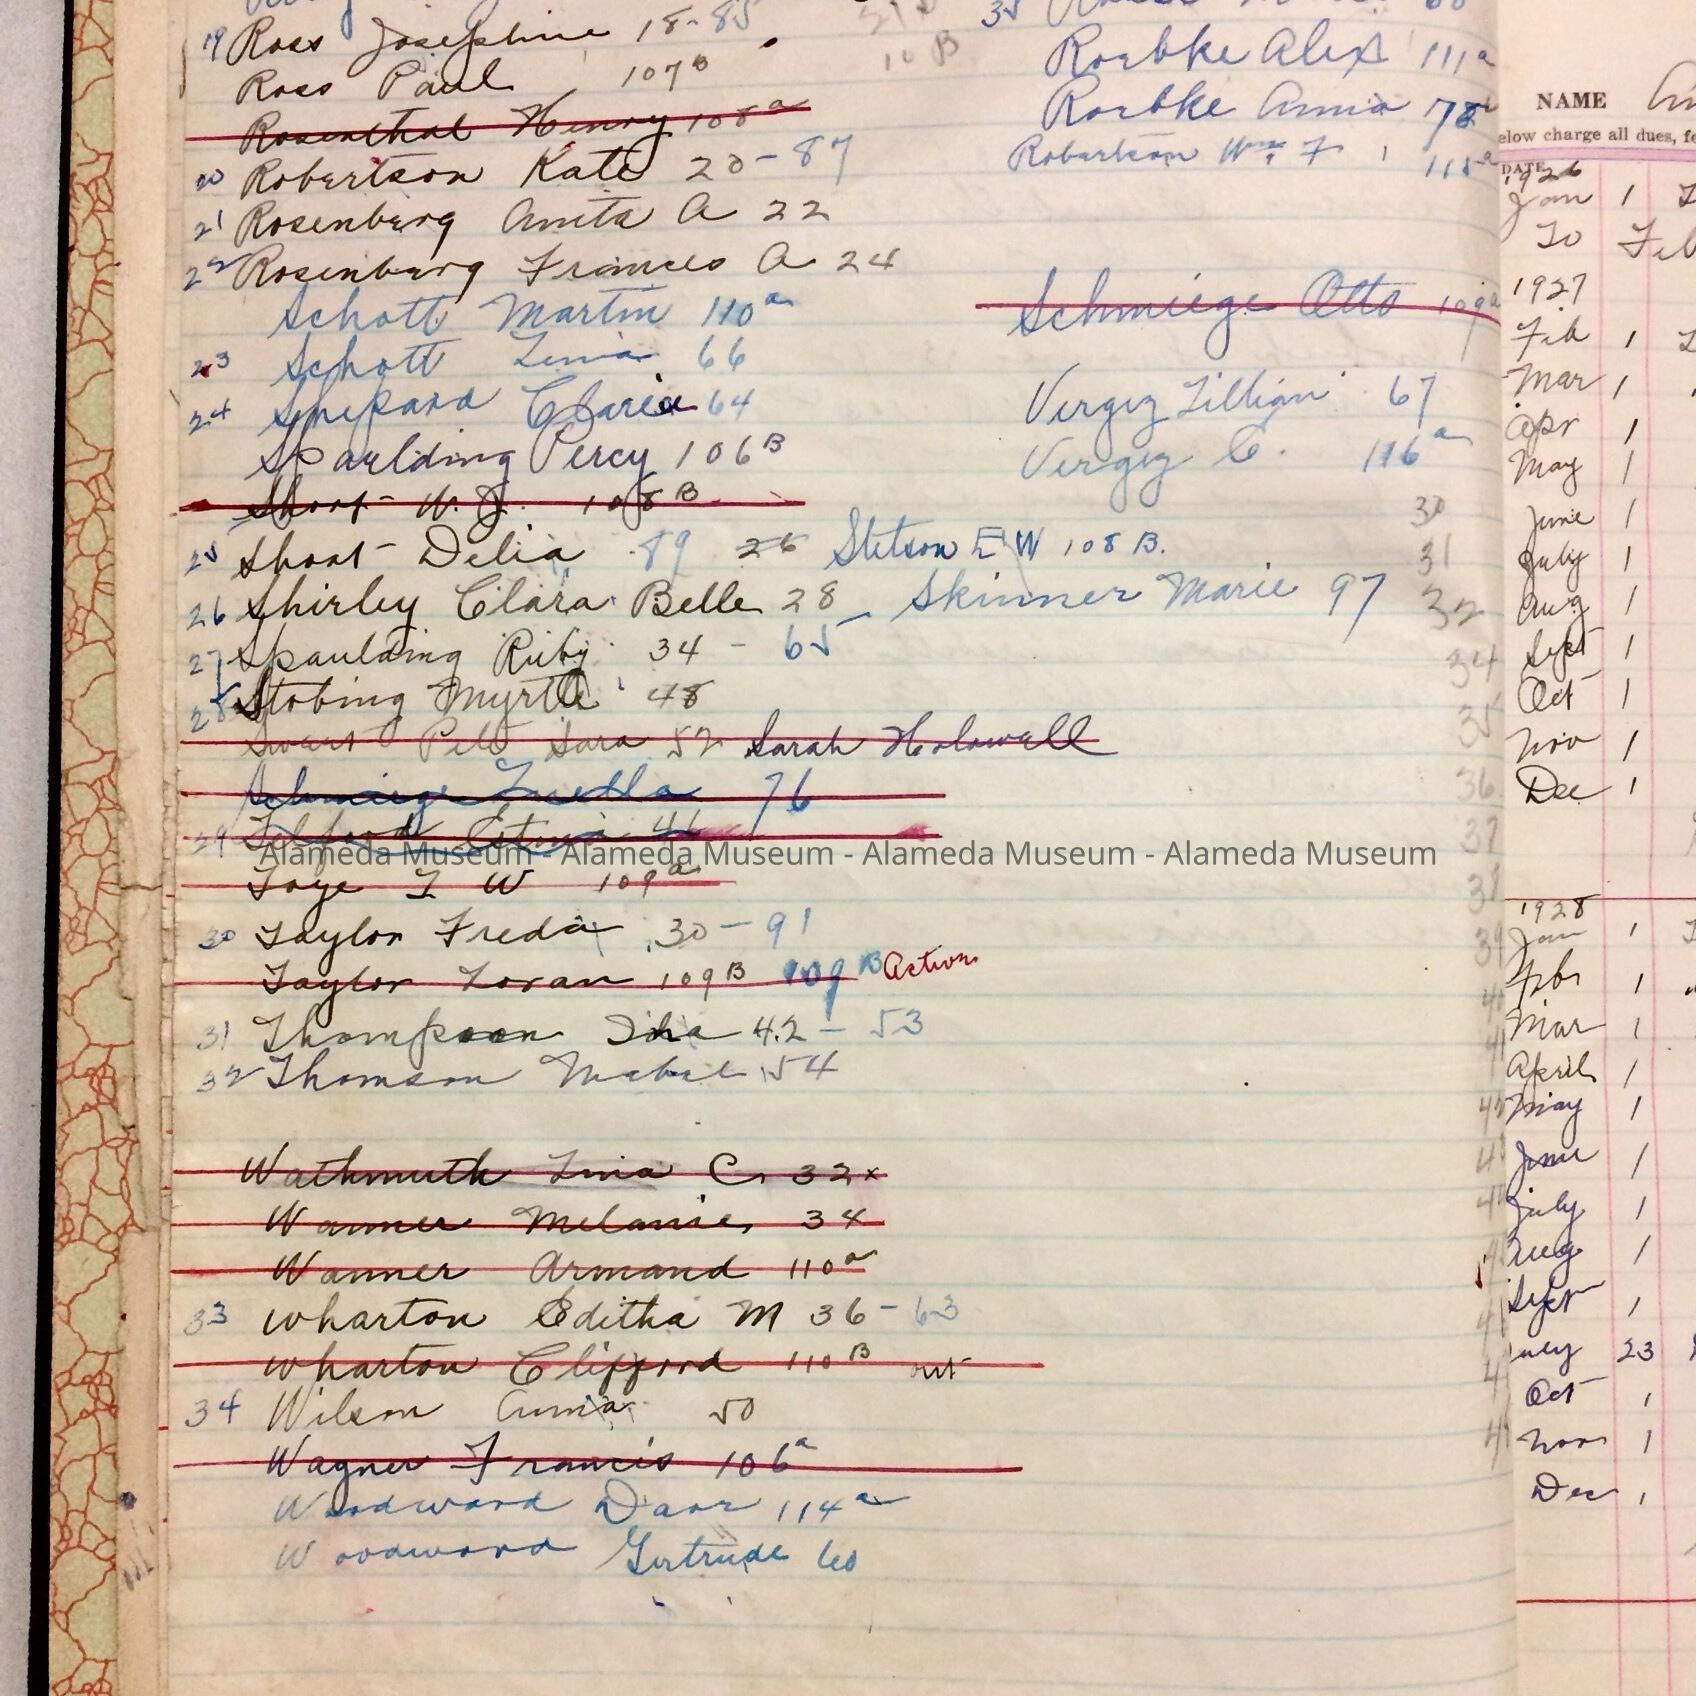 19 Ross Josephine 18-85
Ross Paul 107 B
Rosenthal Henry 108 a
20 Robertson Kate 20-87
21 Rosenberg Anita A 22
22 Rosenberg Frances A 24
Schott Martin 110 a
23 Schott Lena 66
24 Shepard Claria 64
Spaulding Percy 106 B
Short W. J. 108 B
25 Short Delia 89 26 Stetson E W 108 B.
26 Shirley Clara Belle 28 Skinner Marie 97
27 Spaulding Ruby 34 - 65
28 Stobing Myrtle 48
Sara 52 Sarah Holowell
Schmiege Luella 76
29 Telford 46
Alameda Museum - Alameda Museum - Alameda Museum - Alameda Museum
Toye T W 109 a
30 Taylor Freda 30-91
Taylor Loran 109 B 109 B Action
31 Thompson Ida 42 - 53
32 Thomson Mabel 54
Wathmuth Lina C. 32 x
Wanner Melanie 34
Wanner Armand 110 a
33 Wharton Editha M 36-63
Wharton Clifford 110 B out
34 Wilson Anna 50
Wagner Francis 106 a
Woodward 114 a
Woodward Gertrude 60
35
Roebke Alex 111 a
Roebke Anna 78
Robertson Wm. F 115 a
Schmiege Otto 109 a
Vergez Lillian 67
Vergez C. 116 a
30
31
32
34
35
36
37
38
39
NAME
below charge all dues, fe
DATE
1926
Jan 1
To Feb
1927
Feb 1
Mar 1
Apr 1
May 1
June 1
July 1
Aug 1
Sept 1
Oct 1
Nov 1
Dec 1
1928
Jan 1
Feb 1
Mar 1
April 1
May 1
June 1
July 1
Aug 1
Sept 1
23
Oct 1
Nov 1
Dec 1